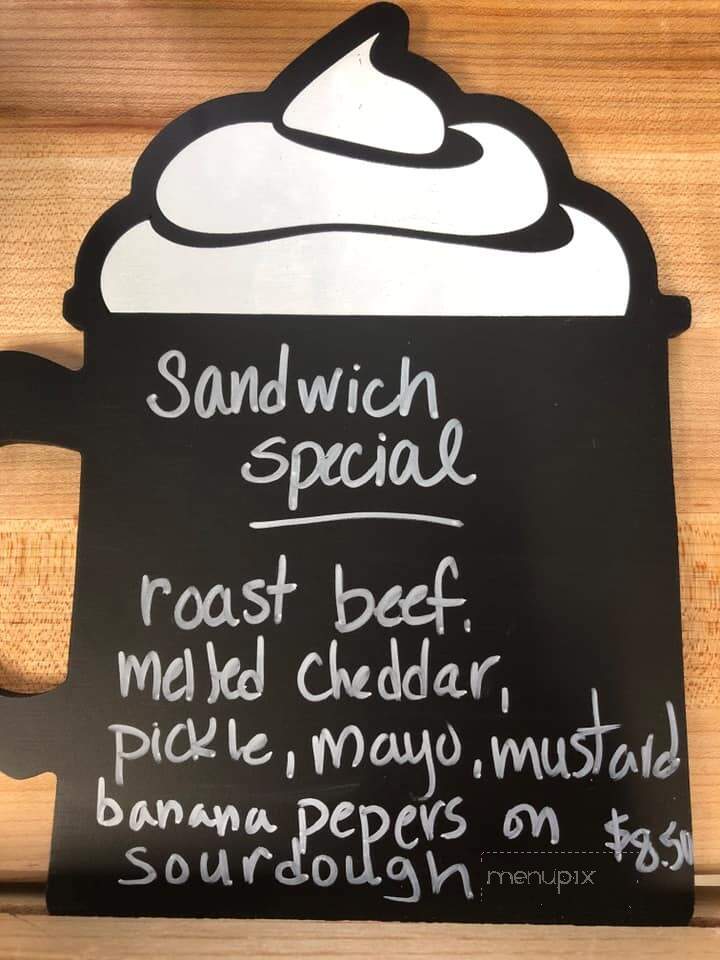 Sandwich
special
roast beef.
melted cheddar,
pickle, mayo, mustard
banana pepers on $8.50
sourdough
menupix